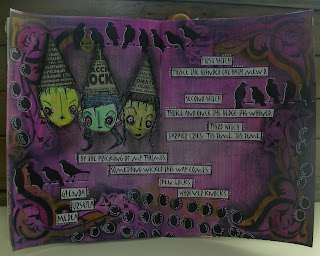 FIRST WITCH
THRICE THE BRINDED CAT HATH MEW'D.
SECOND WITCH
THRICE AND ONCE THE HEDGE-PIG WHINED.
THIRD WITCH
HARPIER CRIES 'TIS TIME, 'TIS TIME.
BY THE PRICKING OF MY THUMBS,
SOMETHING WICKED THIS WAY COMES.
OPEN, LOCKS,
WHOEVER KNOCKS!
GLENDA
URSULA
MEDEA
OCK